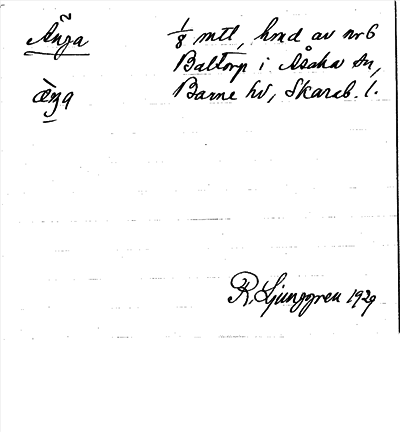 Änga 1/8 mtl, hmd av nr 6
Baltorp i Åsaka sn,
æŋa Barne hd, Skarab. l.
R. Ljunggren 1929